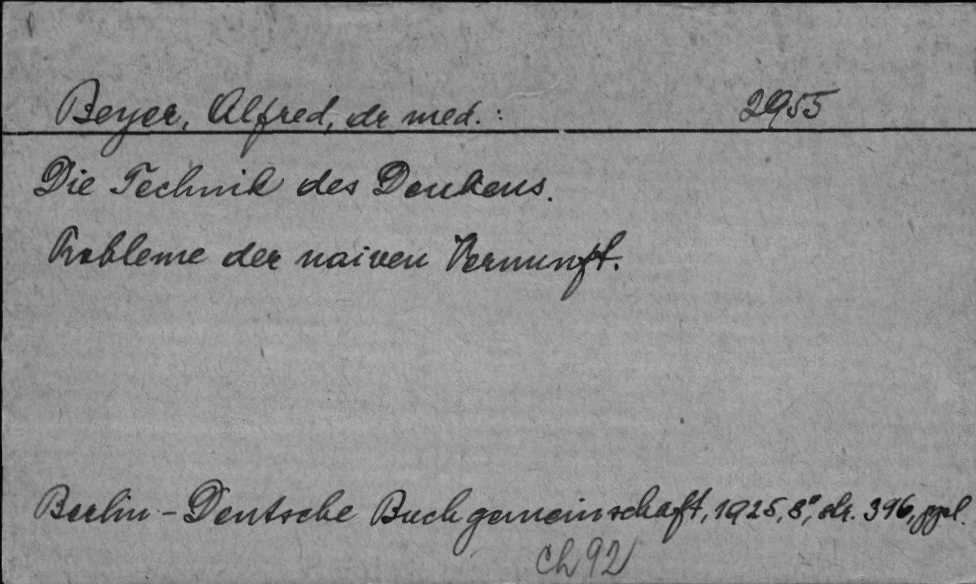 Beyer, Alfred, dr med.: 2955
Die Technik des Denkens.
Probleme der naiven Vernunft.
Berlin - Deutsche Buchgemeinschaft, 1925, 8°, str. 396, ppł.
Ch 92